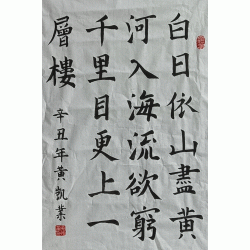 白日依山盡黃
河入海流欲窮
千里目更上一
層樓
辛丑年黃凱業